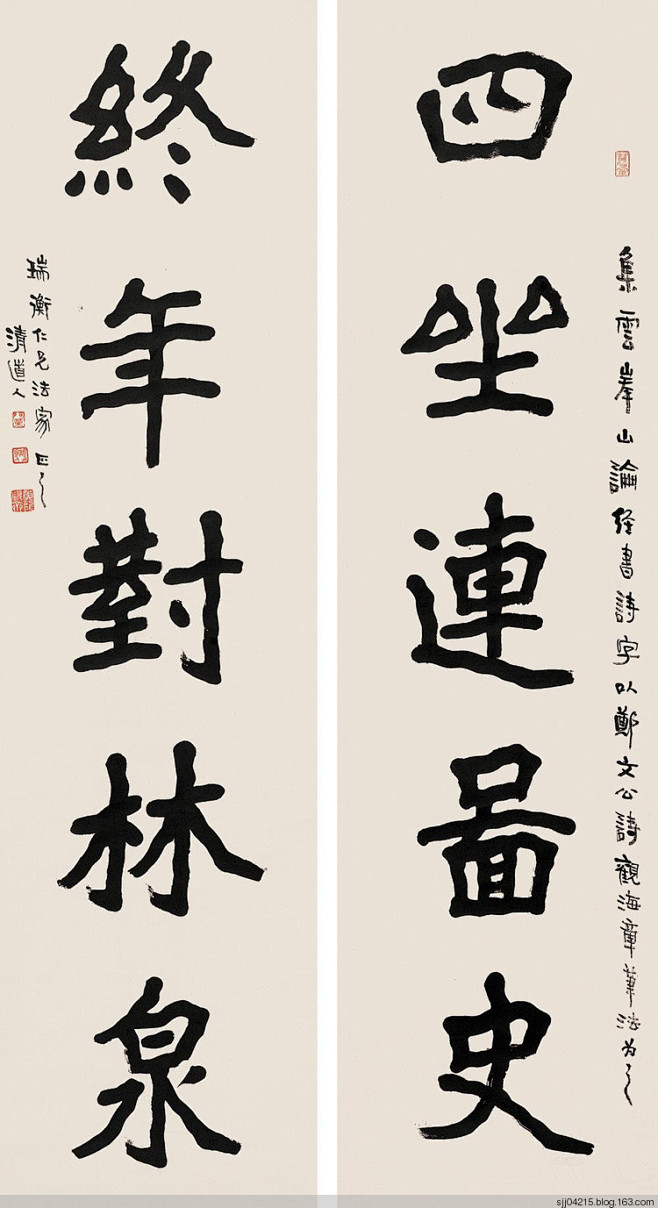 集雲峯山論經書詩字以鄭文公詩觀海章筆法为之
四坐連啚史
終年對林泉
瑞衡仁兄法家正之
清道人
sjj04215.blog.163.com